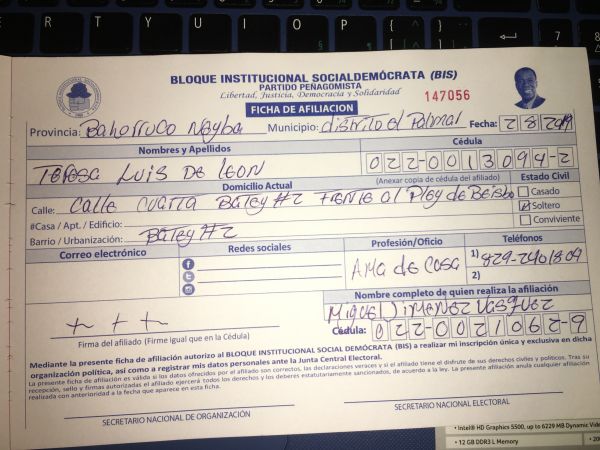 BLOQUE INSTITUCIONAL SOCIALDEMÓCRATA (BIS)
PARTIDO PENAGOMISTA
Libertad, Justicia, Democracia y Solidaridad
FICHA DE AFILIACION
147056
Provincia: Bahorruco Neyba Municipio: distrito el Palmar Fecha: 2 8 2019
Nombres y Apellidos Cédula
Teresa Luis De Leon 022-0013094-2
Domicilio Actual (Anexar copia de cédula del afiliado) Estado Civil
Calle: Calle Cuarta Batey #2 Frente al Pley de Beisbo Casado
#Casa / Apt. / Edificio: Soltero
Barrio / Urbanización: Batey #2 Conviviente
Correo electrónico Redes sociales Profesión/Oficio Teléfonos
Ama de Casa 1) 829-2401809
2)
Nombre completo de quien realiza la afiliación
Miguel Jimenez Vasquez
+ + +
Firma del afiliado (Firme igual que en la Cédula) Cédula: 022-0021062-9
Mediante la presente ficha de afiliación autorizo al BLOQUE INSTITUCIONAL SOCIAL DEMÓCRATA (BIS) a realizar mi inscripción única y exclusiva en dicha
organización política, así como a registrar mis datos personales ante la Junta Central Electoral.
La presente ficha de afiliación es válida si los datos ofrecidos por el afiliado son correctos, las declaraciones veraces y si el afiliado tiene el disfrute de sus derechos civiles y políticos. Tras su
recepción, sello y firmas autorizadas el afiliado ejercerá todos los derechos y los deberes estatutariamente sancionados, de acuerdo a la ley. La presente afiliación anula cualquier afiliación
realizada con anterioridad a la fecha que aparece en esta ficha.
SECRETARIO NACIONAL DE ORGANIZACIÓN SECRETARIO NACIONAL ELECTORAL
• Intel® HD Graphics 5500, up to 6229 MB Dynamic Vide
• 12 GB DDR3 L Memory